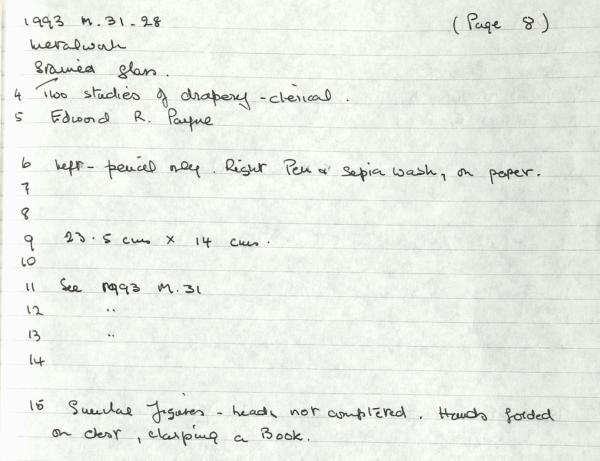 1993 M.31-28 (Page 8)
Metalwork
Stained glass.
4 Two studies of drapery - clerical.
5 Edward R. Payne
6 Left - pencil only. Right Pen & Sepia wash, on paper.
7
8
9 23.5 cms x 14 cms.
10
11 See 1993 M.31
12 "
13 "
14
15 Similar figures - heads not completed. Hands folded
on chest, clasping a Book.